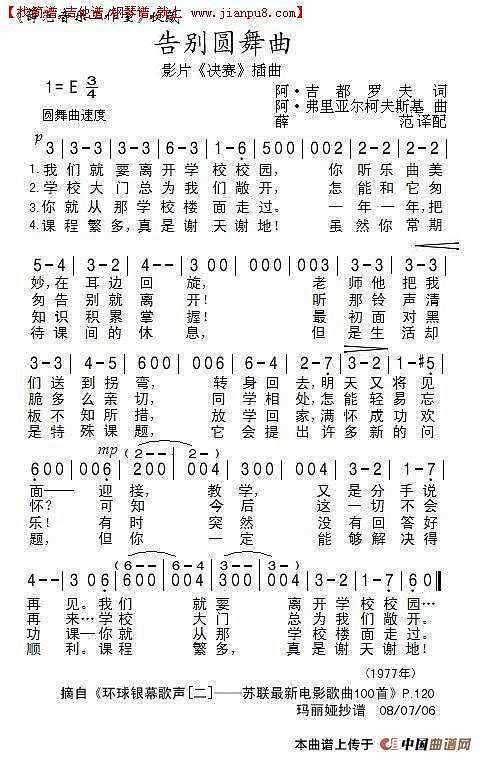 【找简谱、吉他谱、钢琴谱,就上 www.jianpu8.com】
告别圆舞曲
影片《决赛》插曲
1=E 3/4
阿·吉都罗夫 词
阿·弗里亚尔柯夫斯基 曲
圆舞曲速度
薛 范 译配
p
3-3 3-3 3-3 3-3 5 00 002 2-2 2-2 2-2
1.我们就要离开学校校园, 你听乐曲美
2.学校大门总为我们敞开, 怎能和它匆
3.你就从那学校楼面走过。 一年一年,把
4.课程繁多,真是谢天谢地! 虽然你常期
5-4 3-2 4-4 300 000 003 3-3 3-3
妙,在耳边回旋, 老师他把我
匆告别就离开! 听那铃声清
知识积累掌握! 最初面对黑
待课间的休息, 但是生活却
3-3 3-4 5-4 600 000 006 6-4 2-7 3-2 1-#5
们送到拐弯, 转身回去,明天又将见
脆多么亲切, 同学相处,怎能轻易忘
板不知所措, 放学回家,满怀成功欢
是特殊课题, 它会提出许多新的问
mp (2-- 2-)
600 006 200 004 300 004 3-2 1-7
面——迎接,教学,又是分手说
怀? 可知今后这一切不会
乐! 有时突然没有回答好
题, 但你一定能够解决得
(6-- 6-)
4-- 3 06 600 004 3-3 3-2 1-7 60
再见。我们就要离开学校校园…
再来…学校大门总为我们敞开。
功课—你就从那学校楼面走过。
顺利。课程繁多,真是谢天谢地!
(1977年)
摘自《环球银幕歌声[二]——苏联最新电影歌曲100首》P.120
玛丽娅抄谱 08/07/06
本曲谱上传于 中国曲谱网